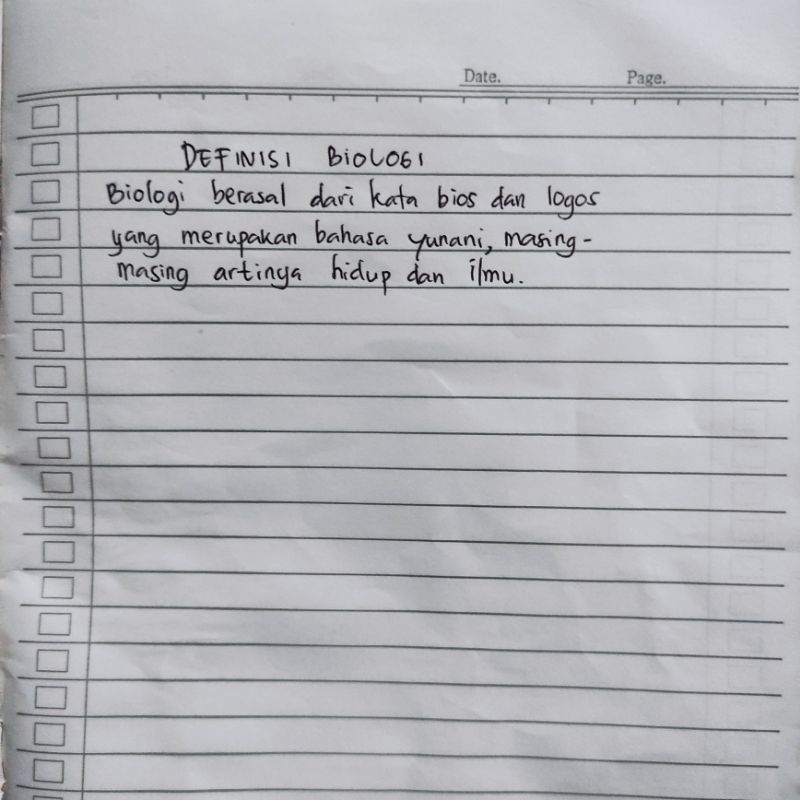 Date. Page.
DEFINISI BIOLOGI
Biologi berasal dari kata bios dan logos
yang merupakan bahasa yunani, masing-
masing artinya hidup dan ilmu.